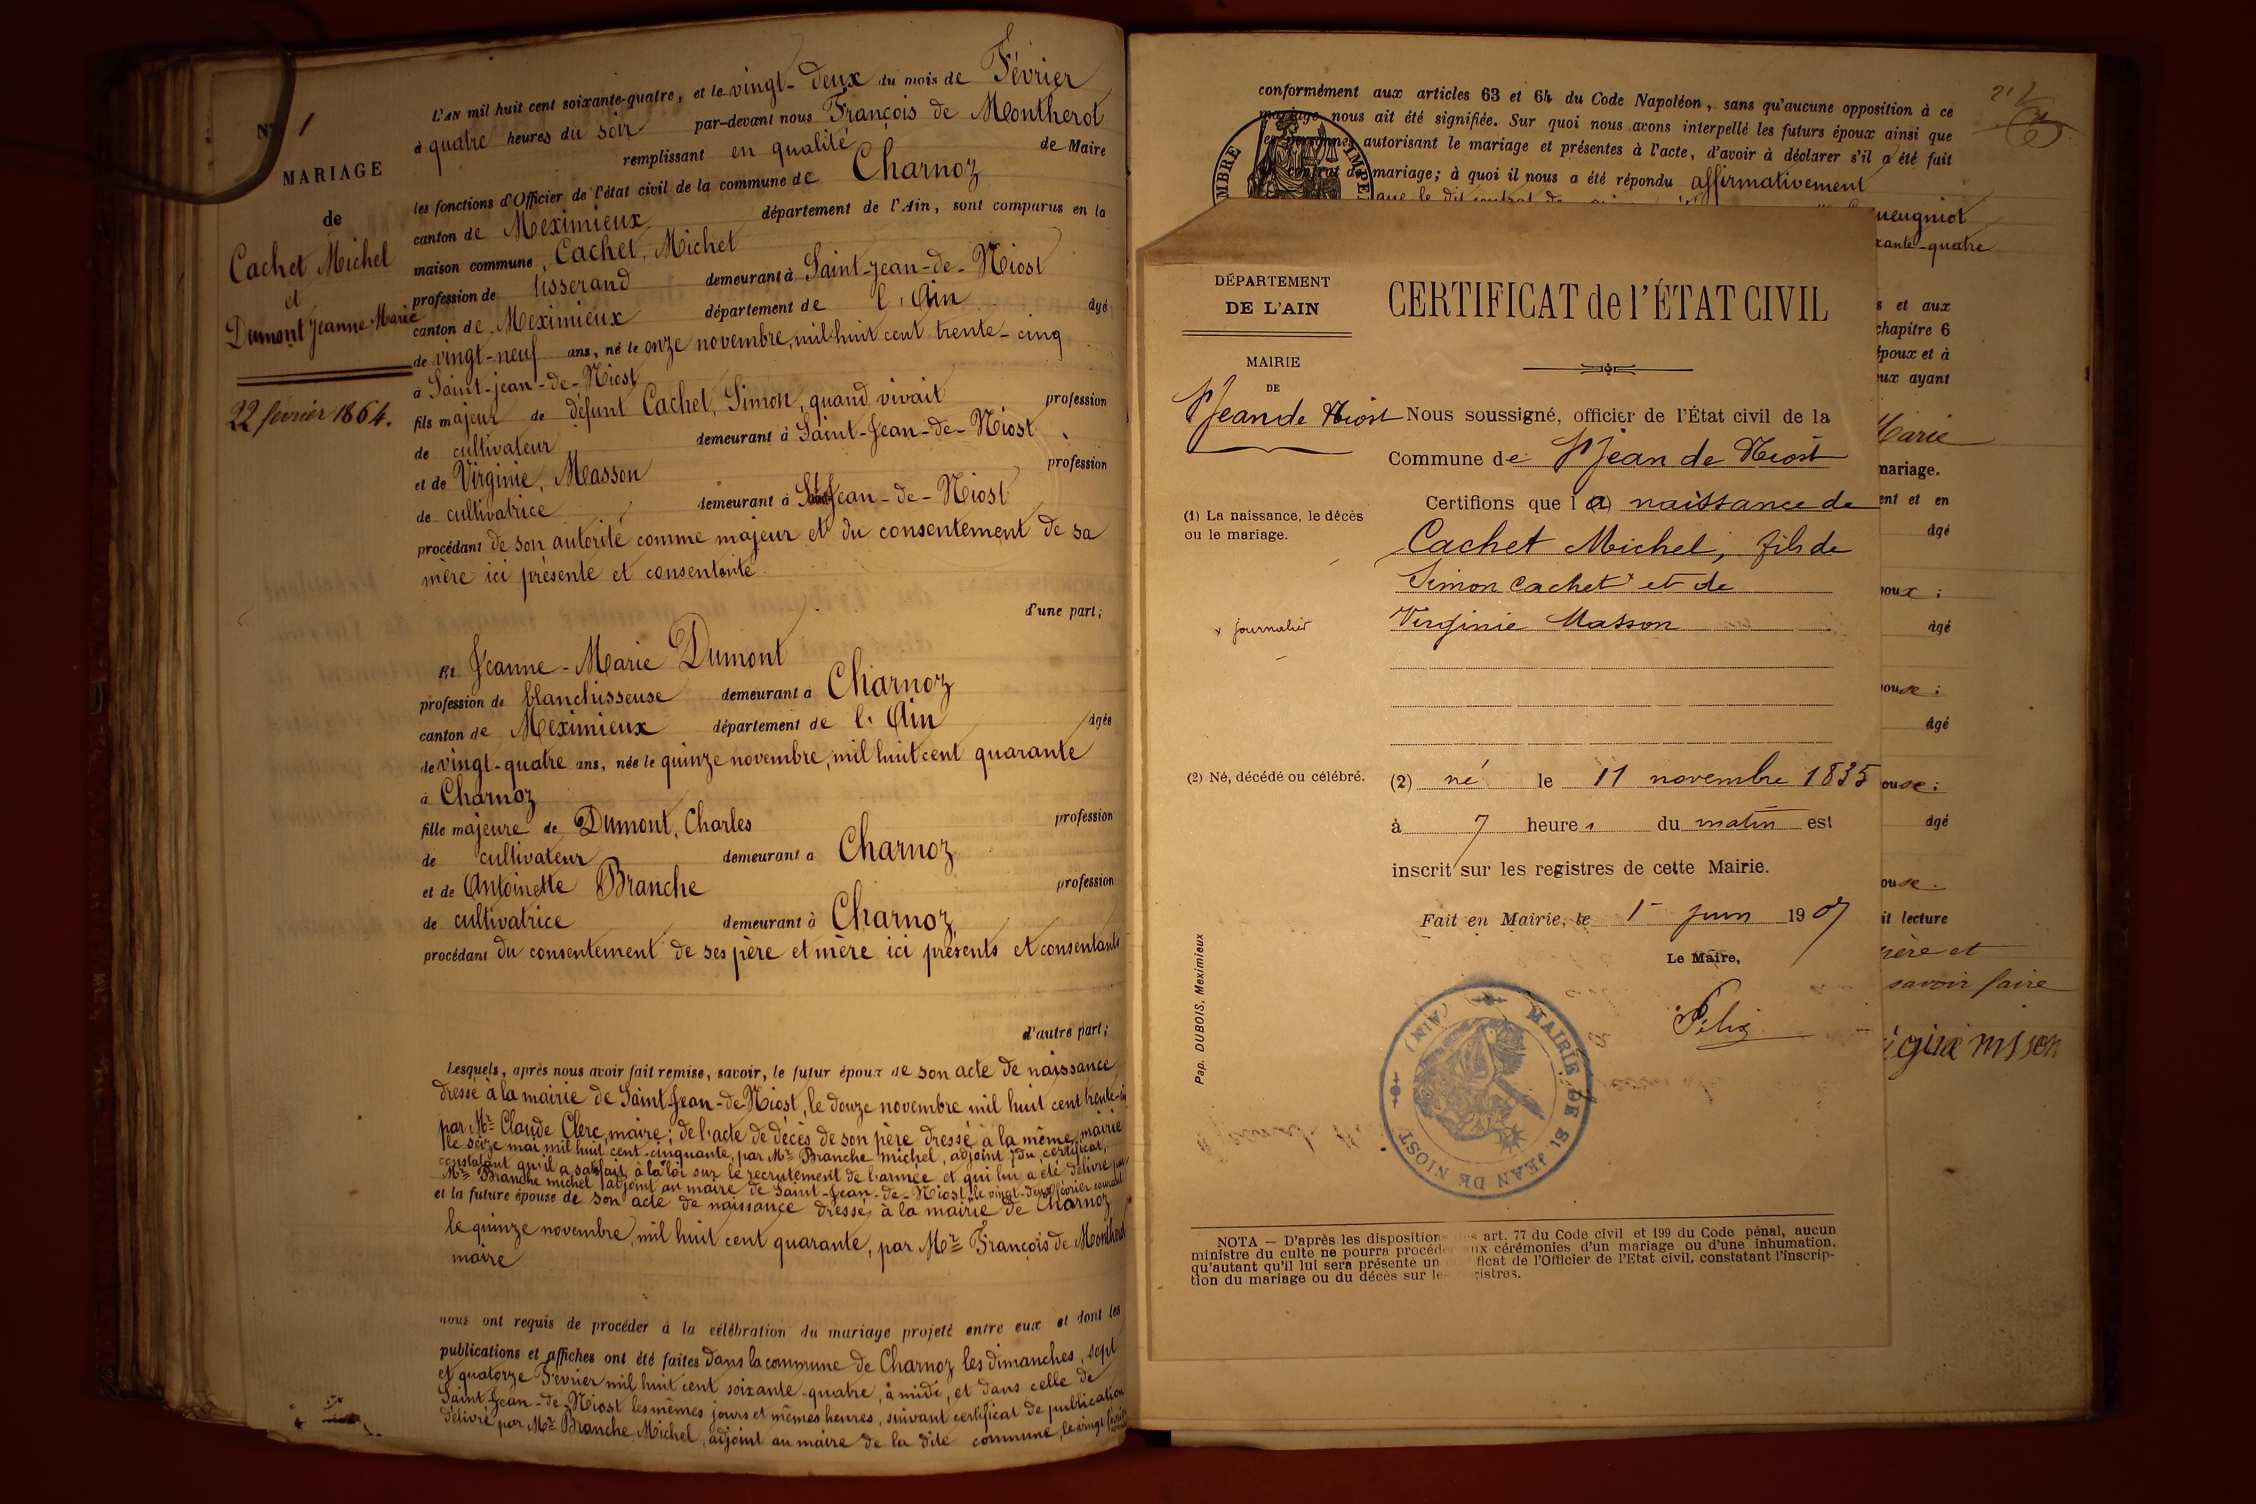 N° 1
MARIAGE
de
Cachet Michel
et
Dumont Jeanne Marie
22 février 1864.
L'AN mil huit cent soixante-quatre, et le vingt-deux du mois de Février
à quatre heures du soir par-devant nous François de Montherot
remplissant en qualité de Maire
les fonctions d'Officier de l'état civil de la commune de Charnoz
canton de Meximieux département de l'Ain, sont comparus en la
maison commune, Cachet, Michel
profession de tisserand demeurant à Saint-Jean-de-Niost
canton de Meximieux département de l'Ain âgé
de vingt-neuf ans, né le onze novembre, mil huit cent trente-cinq
à Saint-Jean-de-Niost
fils majeur de défunt Cachet, Simon, quand vivait profession
de cultivateur demeurant à Saint-Jean-de-Niost
et de Virginie, Masson profession
de cultivatrice demeurant à St Jean-de-Niost
procédant de son autorité comme majeur et du consentement de sa
mère ici présente et consentante
d'une part;
Et Jeanne-Marie Dumont
profession de blanchisseuse demeurant à Charnoz
canton de Meximieux département de l'Ain âgée
de vingt-quatre ans, née le quinze novembre, mil huit cent quarante
à Charnoz
fille majeure de Dumont, Charles profession
de cultivateur demeurant à Charnoz
et de Antoinette Branche profession
de cultivatrice demeurant à Charnoz,
procédant du consentement de ses père et mère ici présents et consentants
d'autre part;
Lesquels, après nous avoir fait remise, savoir, le futur époux de son acte de naissance
dressé à la mairie de Saint-Jean-de-Niost, le douze novembre mil huit cent trente-cinq
par Mr Claude Clerc, maire; de l'acte de décès de son père dressé à la même mairie
le seize mai mil huit cent-cinquante, par Mr Branche michel, adjoint; du certificat,
constatant qu'il a satisfait à la loi sur le recrutement de l'armée et qui lui a été délivré par
Mr Branche michel adjoint au maire de Saint-Jean-de-Niost, le vingt-deux février courant
et la future épouse de son acte de naissance dressé, à la mairie de Charnoz
le quinze novembre, mil huit cent quarante, par Mr François de Montherot
maire
nous ont requis de procéder à la célébration du mariage projeté entre eux et dont les
publications et affiches ont été faites dans la commune de Charnoz les dimanches, sept
et quatorze Février mil huit cent soixante-quatre, à midi, et dans celle de
Saint-Jean-de-Niost les mêmes jours et mêmes heures, suivant certificat de publication
délivré par Mr Branche, Michel, adjoint au maire de la dite commune, le vingt
conformément aux articles 63 et 64 du Code Napoléon, sans qu'aucune opposition à ce
mariage nous ait été signifiée. Sur quoi nous avons interpellé les futurs époux ainsi que
les personnes autorisant le mariage et présentes à l'acte, d'avoir à déclarer s'il a été fait
contrat de mariage; à quoi il nous a été répondu affirmativement
que le dit contrat de
MBRE IMPE
ueugniot
xante-quatre
s et aux
chapitre 6
époux et à
eux ayant
Marie
mariage.
ent et en
âgé
poux;
âgé
pouse;
âgé
ouse;
âgé
ouse.
it lecture
père et
savoir faire
DÉPARTEMENT
DE L'AIN
MAIRIE
DE
St Jean de Niost
(1) La naissance, le décès
ou le mariage.
x journalier
(2) Né, décédé ou célébré.
Pap. DUBOIS, Meximieux
CERTIFICAT de l'ÉTAT CIVIL
Nous soussigné, officier de l'État civil de la
Commune de St Jean de Niost
Certifions que l a (1) naissance de
Cachet Michel, fils de
Simon Cachet x et de
Virginie Masson
(2) né le 11 novembre 1835
à 7 heures du matin est
inscrit sur les registres de cette Mairie.
Fait en Mairie, le 1er juin 1907
Le Maire,
MAIRIE DE St JEAN DE NIOST (AIN)
NOTA — D'après les dispositions des art. 77 du Code civil et 199 du Code pénal, aucun
ministre du culte ne pourra procéder aux cérémonies d'un mariage ou d'une inhumation,
qu'autant qu'il lui sera présente un certificat de l'Officier de l'Etat civil, constatant l'inscrip-
tion du mariage ou du décès sur les registres.